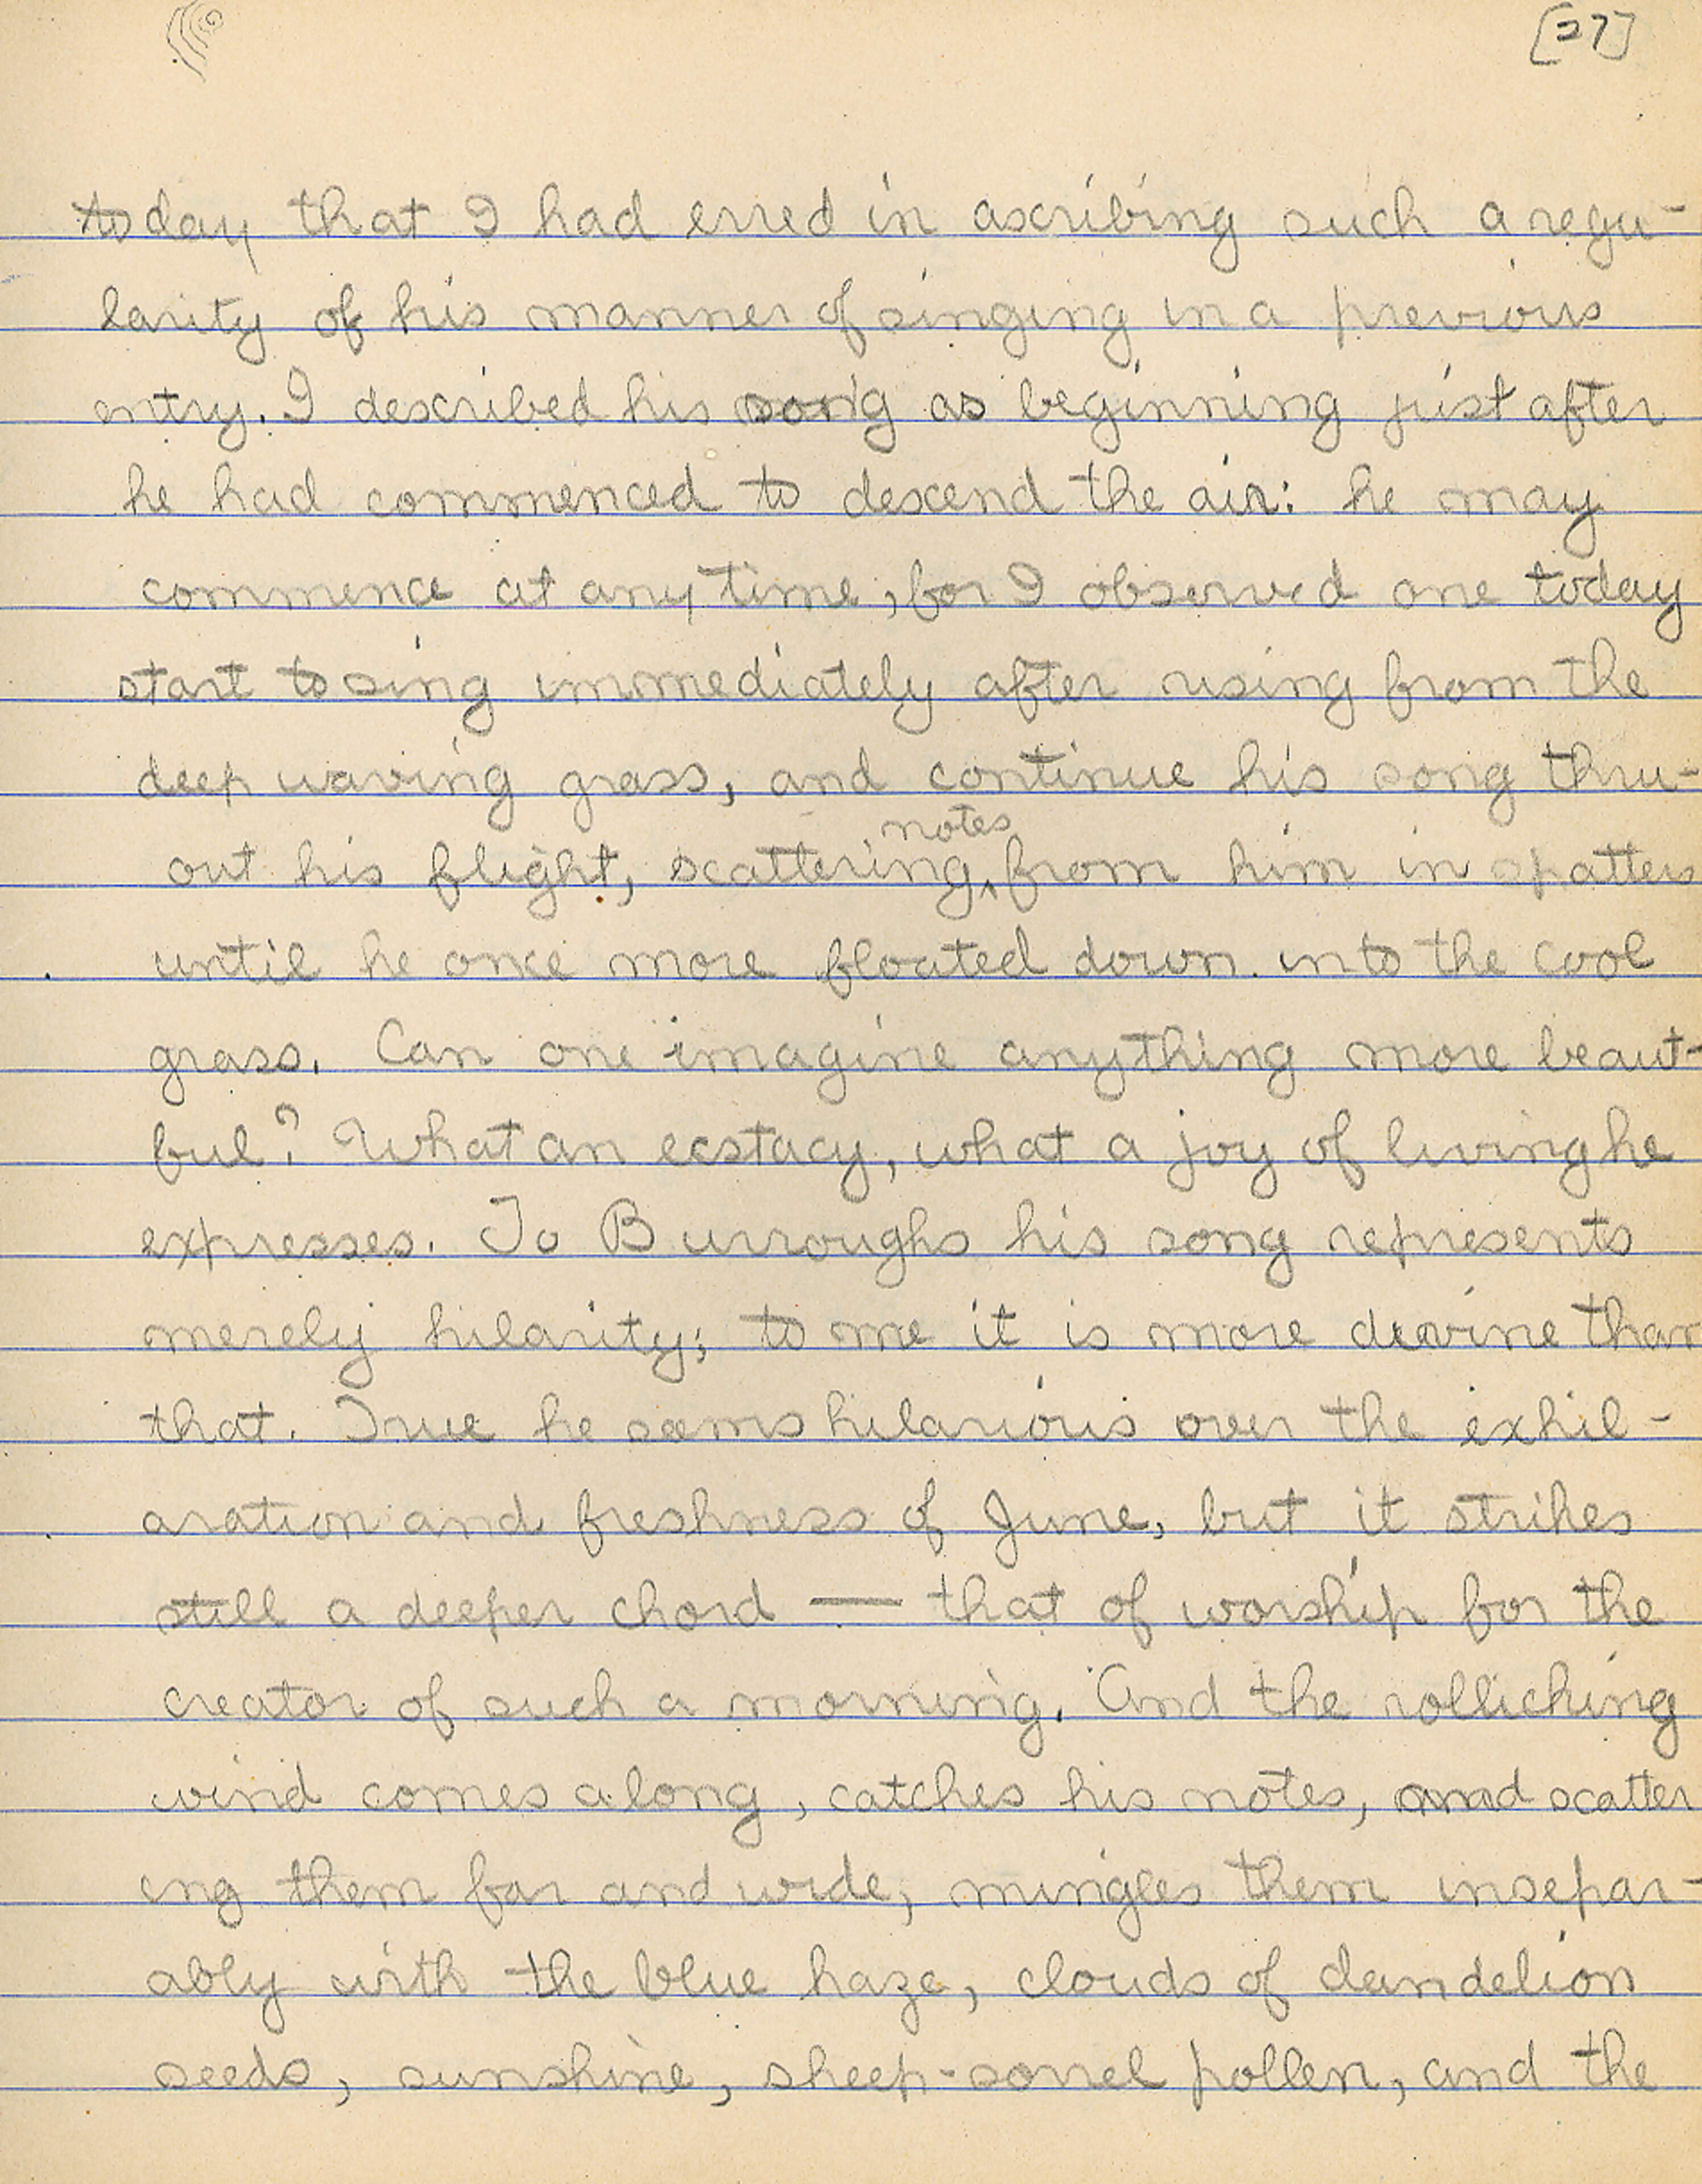 [27]
today that I had erred in ascribing such a regu-
larity of his manner of singing in a previous
entry. I described his song as beginning just after
he had commenced to descend the air: he may
commence at any time, for I observed one today
start to sing immediately after rising from the
deep waving grass, and continue his song thru-
notes
out his flight, scattering ‸ from him in spatters
until he once more floated down into the cool
grass. Can one imagine anything more beaut-
ful? What an ecstacy, what a joy of living he
expresses. To Burroughs his song represents
merely hilarity; to me it is more divine than
that. True he seems hilarious over the exhil-
aration and freshness of June, but it strikes
still a deeper chord — that of worship for the
creator of such a morning. And the rollicking
wind comes along, catches his notes, and scatter
ing them far and wide, mingles them insepar-
ably with the blue haze, clouds of dandelion
seeds, sunshine, sheep-sorrel pollen, and the